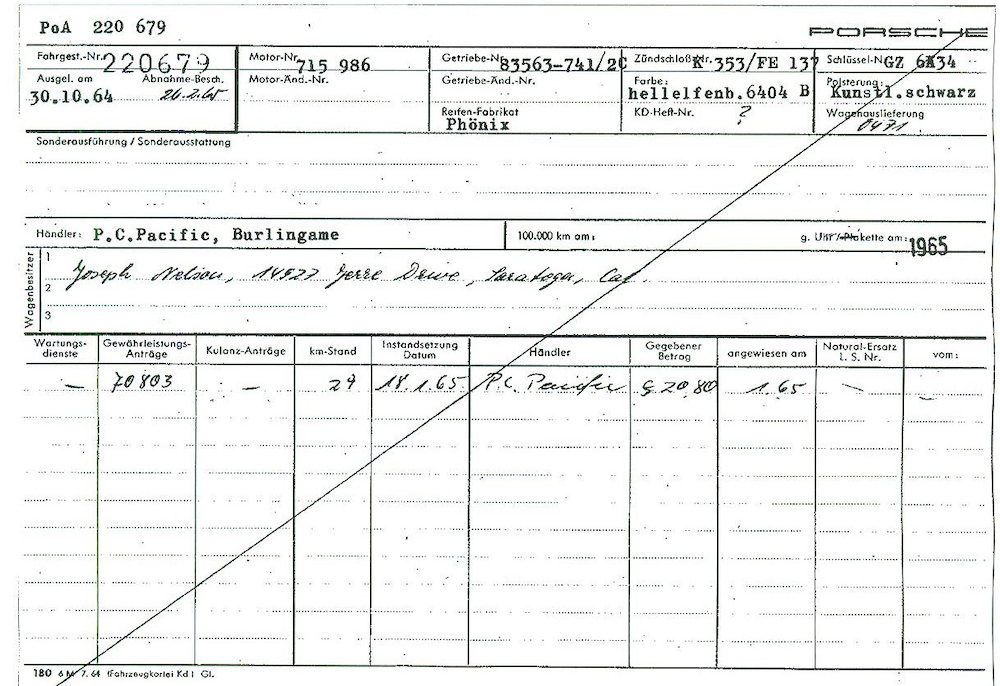 PoA 220 679
PORSCHE
Fahrgest.-Nr. 220679 Motor-Nr. 715 986 Getriebe-Nr. 83563-741/2C Zündschloß-Nr. K 353/FE 137 Schlüssel-N GZ 6 34
Ausgel. am Abnahme-Besch. Motor-Änd.-Nr. Getriebe-Änd.-Nr. Farbe: Polsterung:
30.10.64 26.2.65 hellelfenb.6404 B Kunstl.schwarz
Reifen-Fabrikat KD-Heft-Nr. ? Wagenauslieferung
Phönix 0471
Sonderausführung / Sonderausstattung
Händler: P.C.Pacific, Burlingame 100.000 km am: g. Uhr/Plakette am: 1965
Wagenbesitzer
1 Joseph Nelson, Drive, Saratoga, Cal.
2
3
Wartungs-dienste Gewährleistungs-Anträge Kulanz-Anträge km-Stand Instandsetzung Datum Händler Gegebener Betrag angewiesen am Natural-Ersatz L. S. Nr. vom:
— 70803 — 29 18.1.65 P.C. Pacific $ 20,80 1.65 — —
180 6 M 7. 64 (Fahrzeugkartei Kd) Gl.